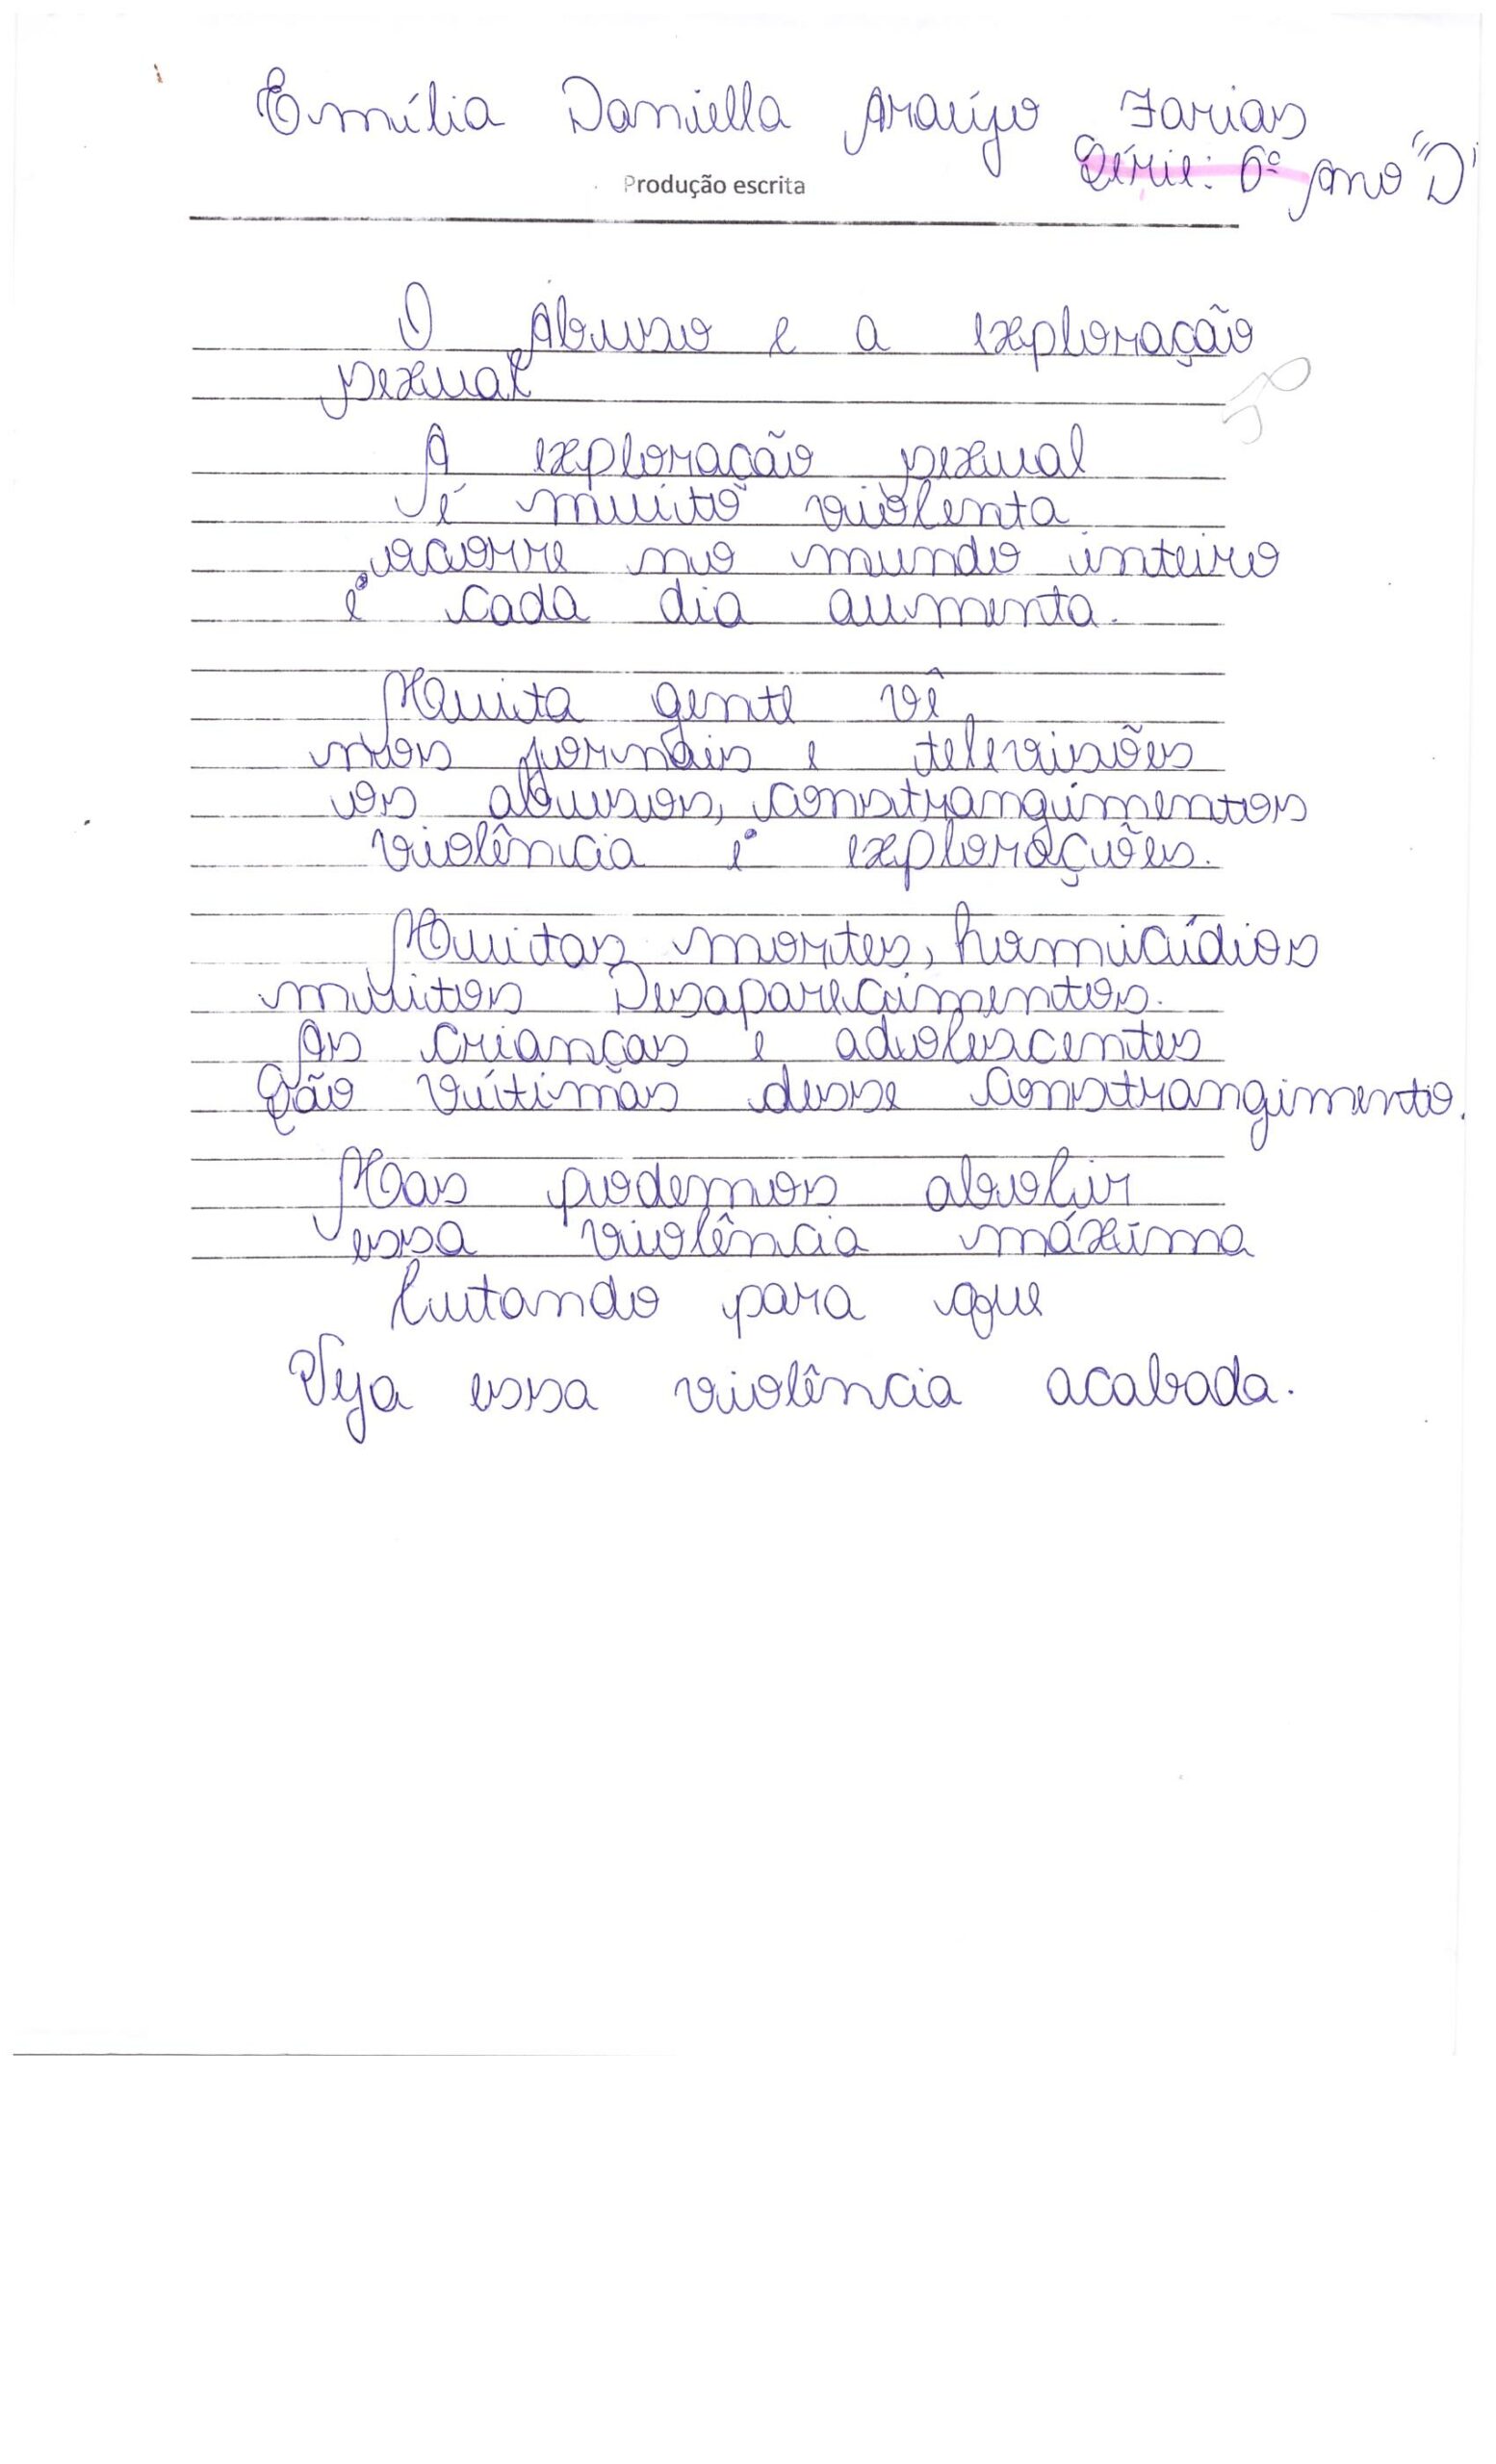 Emília Daniella Araújo Farias
Série: 6º ano "D"
Produção escrita
O Abuso e a exploração
sexual
A exploração sexual
é muito violenta
ocorre no mundo inteiro
e cada dia aumenta.
Muita gente vê
nos jornais e televisões
os abusos, constrangimentos
violência e explorações.
Muitas mortes, homicídios
muitos Desaparecimentos.
As crianças e adolescentes
São vítimas desse constrangimento.
Mas podemos abolir
essa violência máxima
lutando para que
Veja essa violência acabada.